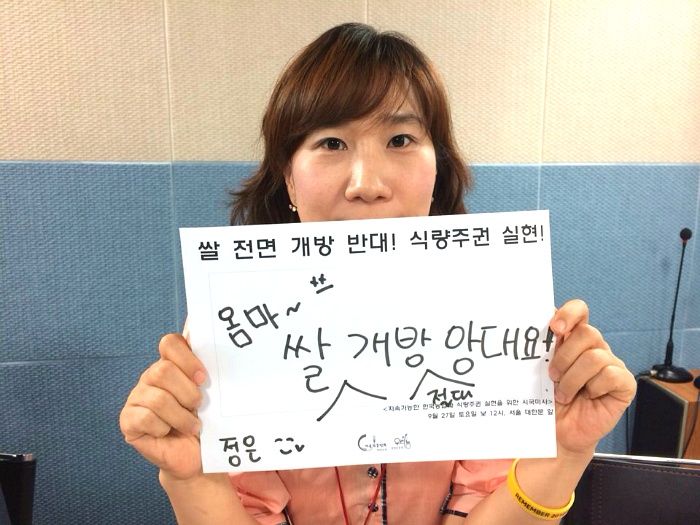 쌀 전면 개방 반대! 식량주권 실현!
옴마~
쌀 개방 앙대요!
절대
<지속가능한 한국농업과 식량주권 실현을 위한 시국미사>
9월 27일 토요일 낮 12시, 서울 대한문 앞
정은
REMEMBER 20